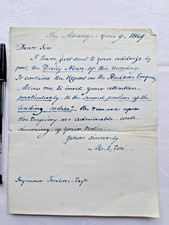 The Albany, April 9, 1849
Dear Sir
I have just sent to your address by
post the Daily News of this morning
It contains the Report on the
Allow me to invite your attention
particularly to the second portion of the
leading article. The remarks upon
the Enquiry are admirable & well
deserving of your notice.
Yours sincerely
Seymour Esqr